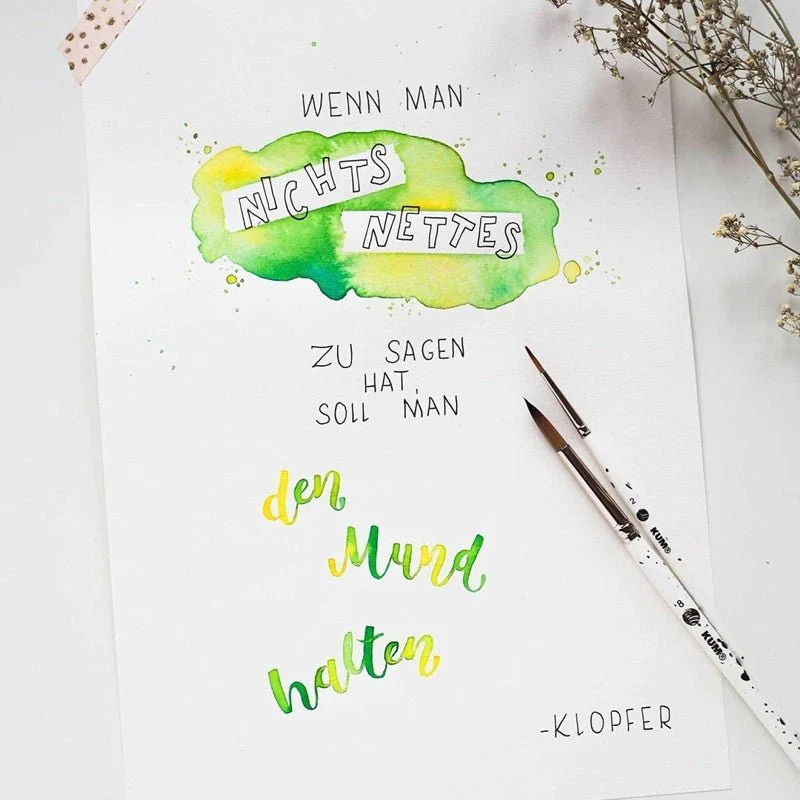 WENN MAN
NICHTS
NETTES
ZU SAGEN
HAT,
SOLL MAN
den
Mund
halten
-KLOPFER
2 KUM®
8 KUM®